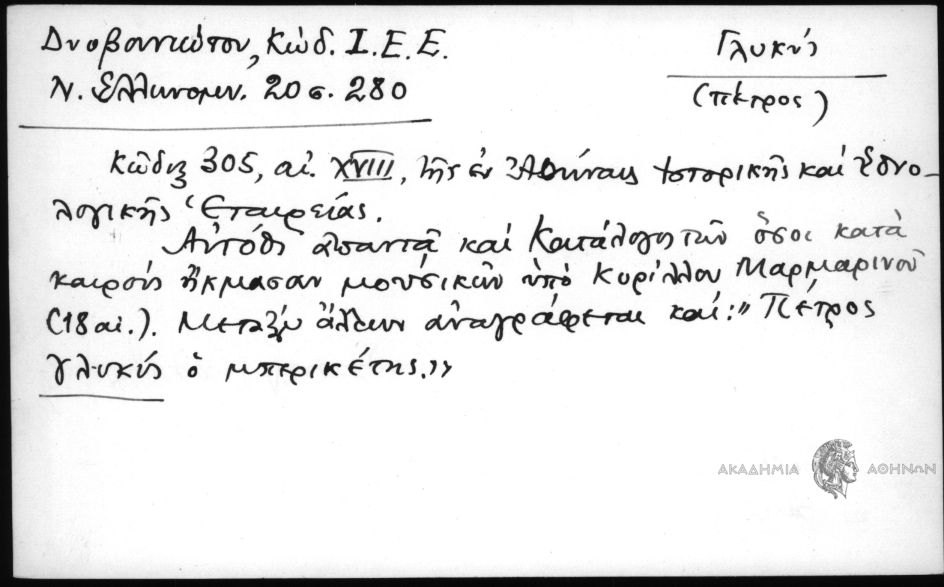 Δυοβουνιώτου, Κώδ. Ι.Ε.Ε.
Ν. Ἑλληνομν. 20 σ. 280
Γλυκύς
(Πέτρος)
Κῶδιξ 305, αἰ. XVIII, τῆς ἐν Ἀθήναις Ἱστορικῆς καὶ Ἐθνο-
λογικῆς Ἑταιρείας.
Αὐτόθι ἀπαντᾷ καὶ Κατάλογος τῶν ὅσοι κατὰ
καιροὺς ἤκμασαν μουσικῶν ὑπὸ Κυρίλλου Μαρμαρινοῦ
(18 αἰ.). Μεταξὺ ἄλλων ἀναγράφεται καί: "Πέτρος
γλυκύς ὁ μπερικέτης."
ΑΚΑΔΗΜΙΑ ΑΘΗΝΩΝ